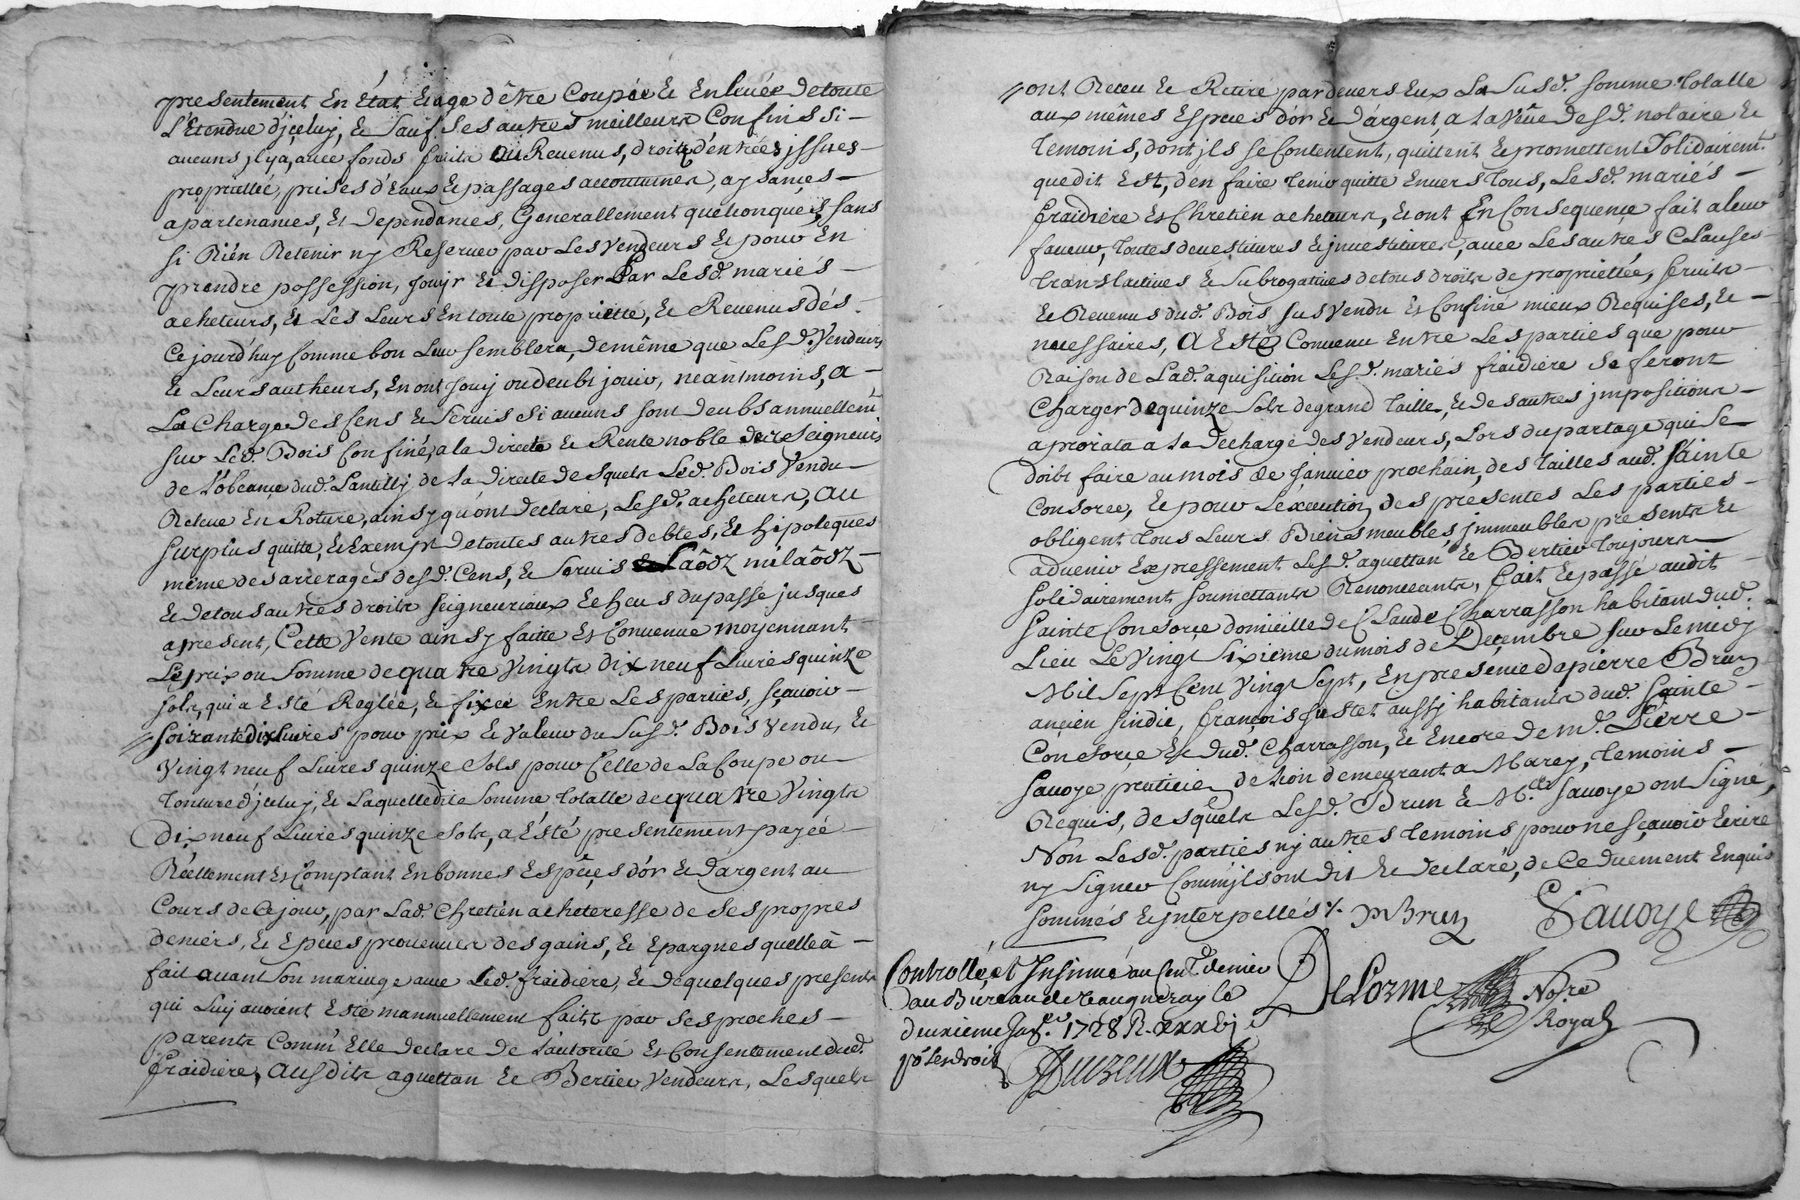 presentement En état Et age d'être Coupée Et Enlevée de toute
L'Etendue d'jceluy, Et Sauf Ses autres meilleurs Confins si -
aucuns jl y a, avec fonds fruits Et Revenus, droits d'entrées jssues -
proprietté, prises d'Eaux Et passages accoutumes, aysances -
apartenances, Et Dependances, Generallement quelconques, sans
si Rién Retenir ny Reserver par Les vendeurs Et pour En
prendre possession, jouyr Et disposer Par Lesd. mariés -
acheteurs, Et Les Leurs En toute proprietté, Et Revenus dés -
Ce jourd'huy Comme bon Leur semblera, de même que Lesd. Vendeurs
Et Leurs autheurs, En ont jouy ou deubt jouir, néantmoins, a -
La Charge des Cens Et Servis si aucuns sont deubs annuellemt.
sur Led. Bois Confiné, a la Directe Et Rente noble des Seigneurs
de L'obeance dud. Lantilly de la Directe desquels Led. Bois Vendu -
Releve En Roture, ainsy qu'ont Declaré, Lesd. acheteurs, au
surplus quitte, Et Exempt de toutes autres debtes, Et hipoteques
même des arrerages desd. Cens, Et Servis Laôdz milaôdz -
Et de tous autres droits seigneuriaux Echeus du passé jusques
apresent, Cette Vente ainsy faitte Et Convenue moyennant -
Le prix ou somme de quatre Vingts dix neuf Livres quinze
sols, qui a Esté Reglée, Et fixée Entre Les parties, sçavoir -
soixante dix Livres pour prix Et Valeur du susd. Bois Vendu, Et
Vingt neuf Livres quinze Sols pour Celle de La Coupe ou -
Tonture d'jceluy, Et Laquelle dite Somme Totalle de quatre Vingts
Dix neuf Livres quinze sols, a Ésté presentement payée -
Réellement Et Comptant En bonnes Espéces d'or Et d'argent au
Cours de Ce jour, par Lad. Chretien acheteresse de ses propres
deniers, Et Epeces provenues des gains, Et Epargnes quelle a -
fait avant son mariage avec Led. fraidiere, Et de quelques presents
qui Luy avoient Esté mannuellement faits par ses proches -
parents Comm' Elle declare de L'autorité Et Consentement dud.
fraidiere, Ausdits aguettan Et Bertier Vendeurs, Lesquels
ont Receu Et Retiré pardevers Eux La Susd. somme Totalle
aux mêmes Espéces d'or Et d'argent, a La vüe desd. notaire Et
Temoins, dont jls se Contentent, quittent Et promettent Solidairemt.
que dit Est, d'en faire Tenir quitte Envers Tous, Lesd. mariés -
fraidiere Et Chretien acheteurs, Et ont En Consequence fait a leur
faveur, Toutes devestitures Et jnvestitures, avec Les autres Clauses -
Translatives Et Subrogatives de tous droits de proprietté, fruits -
Et Revenus dud. Bois sus vendu Et Confiné mieux Requises, Et -
necessaires, A Esté Convenu Entre Les parties que pour
Raison de Lad. aquisition Lesd. mariés fraidiere se feront
Charger de quinze sols de grand Taille, Et des autres jmpositions -
a prorata a la Decharge des Vendeurs, Lors du partage qui Se -
doibt faire au mois de janvier prochain, des Tailles aud. Sainte
Consorce, Et pour L'execution des presentes Les parties -
obligent Tous Leurs Biens meubles, jmmeubles presents Et
advenir Expressement Lesd. aguettan Et Bertier Toujours
solidairement soumettants Renonceants, fait Et passé audit
Sainte Consorce domicille de Claude Charrasson habitant dud.
Lieu Le Vingt Sixieme du mois de Decembre sur Le midy
Mil Sept Cent Vingt Sept, En presence de pierre Brun
ancien sindic, françois fustet aussy habitants dud. Sainte -
Consorce Et dud. Charrasson, Et Encore de m.e Pierre -
Savoye praticien de Lion demeurant a Marcy, Temoins -
Requis, desquels Lesd. Brun Et M.e Savoye ont Signé,
Non Lesd. parties ny autres Temoins pour ne sçavoir Ecrire
ny Signer Comm'jls ont dit Et declaré, de Ce duement Enquis
sommés Et jnterpellés %. P Brun PSavoye
Controllé, et Insinué au Cent.e denier
au Bureau de Vaugneray le
deuxieme Janv.r 1728 R. xxxvj s
DeLorme Not.re
Royal